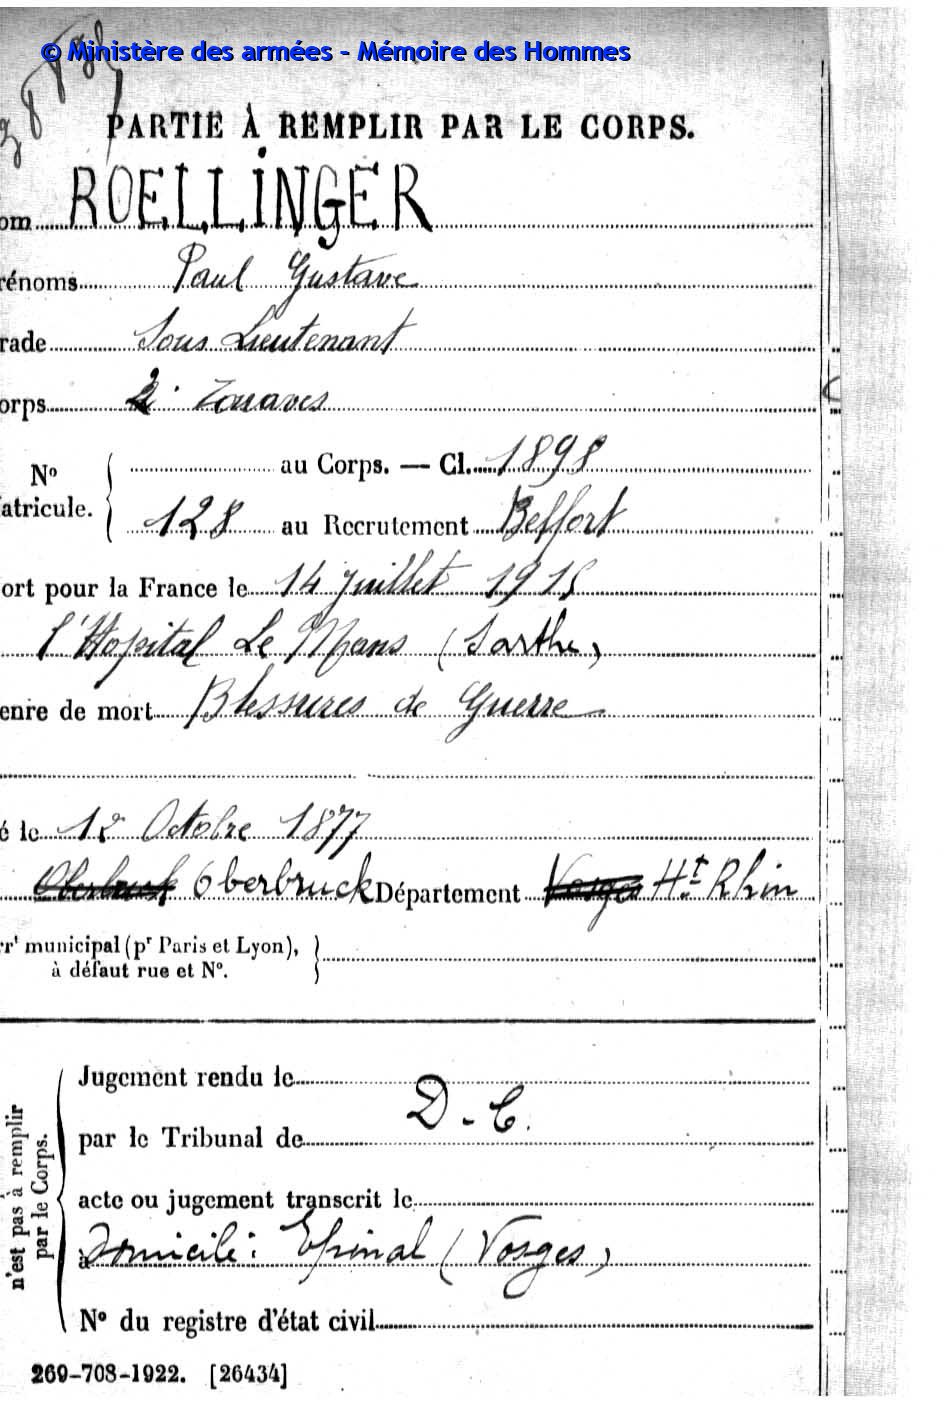 © Ministère des armées - Mémoire des Hommes
PARTIE À REMPLIR PAR LE CORPS.
om ROELLINGER
rénoms Paul Gustave
rade Sous Lieutenant
orps 2e Zouaves
No au Corps. — Cl. 1898
atricule. 128 au Recrutement Belfort
ort pour la France le 14 Juillet 1915
l'Hopital Le Mans (Sarthe)
enre de mort Blessures de Guerre
é le 12 Octobre 1877
Oberbruck Oberbruck Département Vosges Ht Rhin
rrt municipal (pr Paris et Lyon),
à défaut rue et No.
n'est pas à remplir
par le Corps.
Jugement rendu le
D.C.
par le Tribunal de
acte ou jugement transcrit le
à Domicile : Epinal (Vosges)
No du registre d'état civil
269-708-1922. [26434]